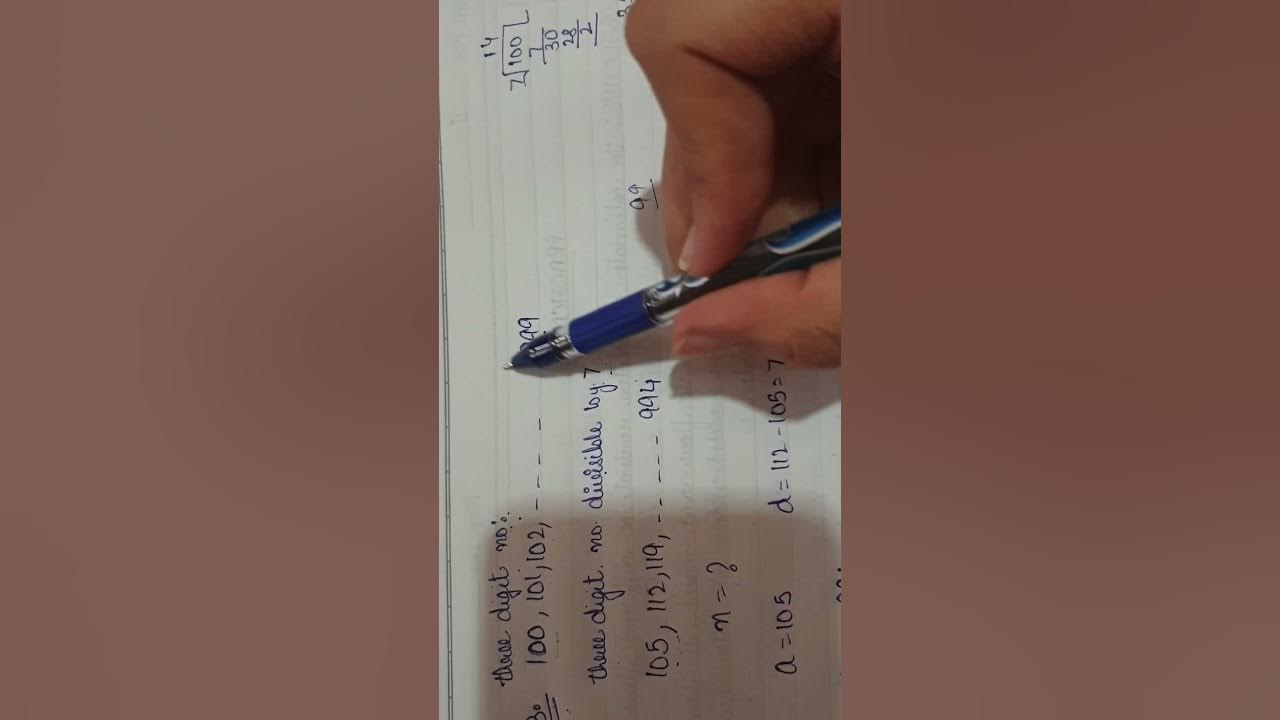 3. three digit no:
100, 101, 102, - - - - - 999
three digit. no. divisible by 7
105, 112, 119, - - - - - 994
n = ?
a = 105 d = 112 - 105 = 7
14
7 100
7
30
28
2
99